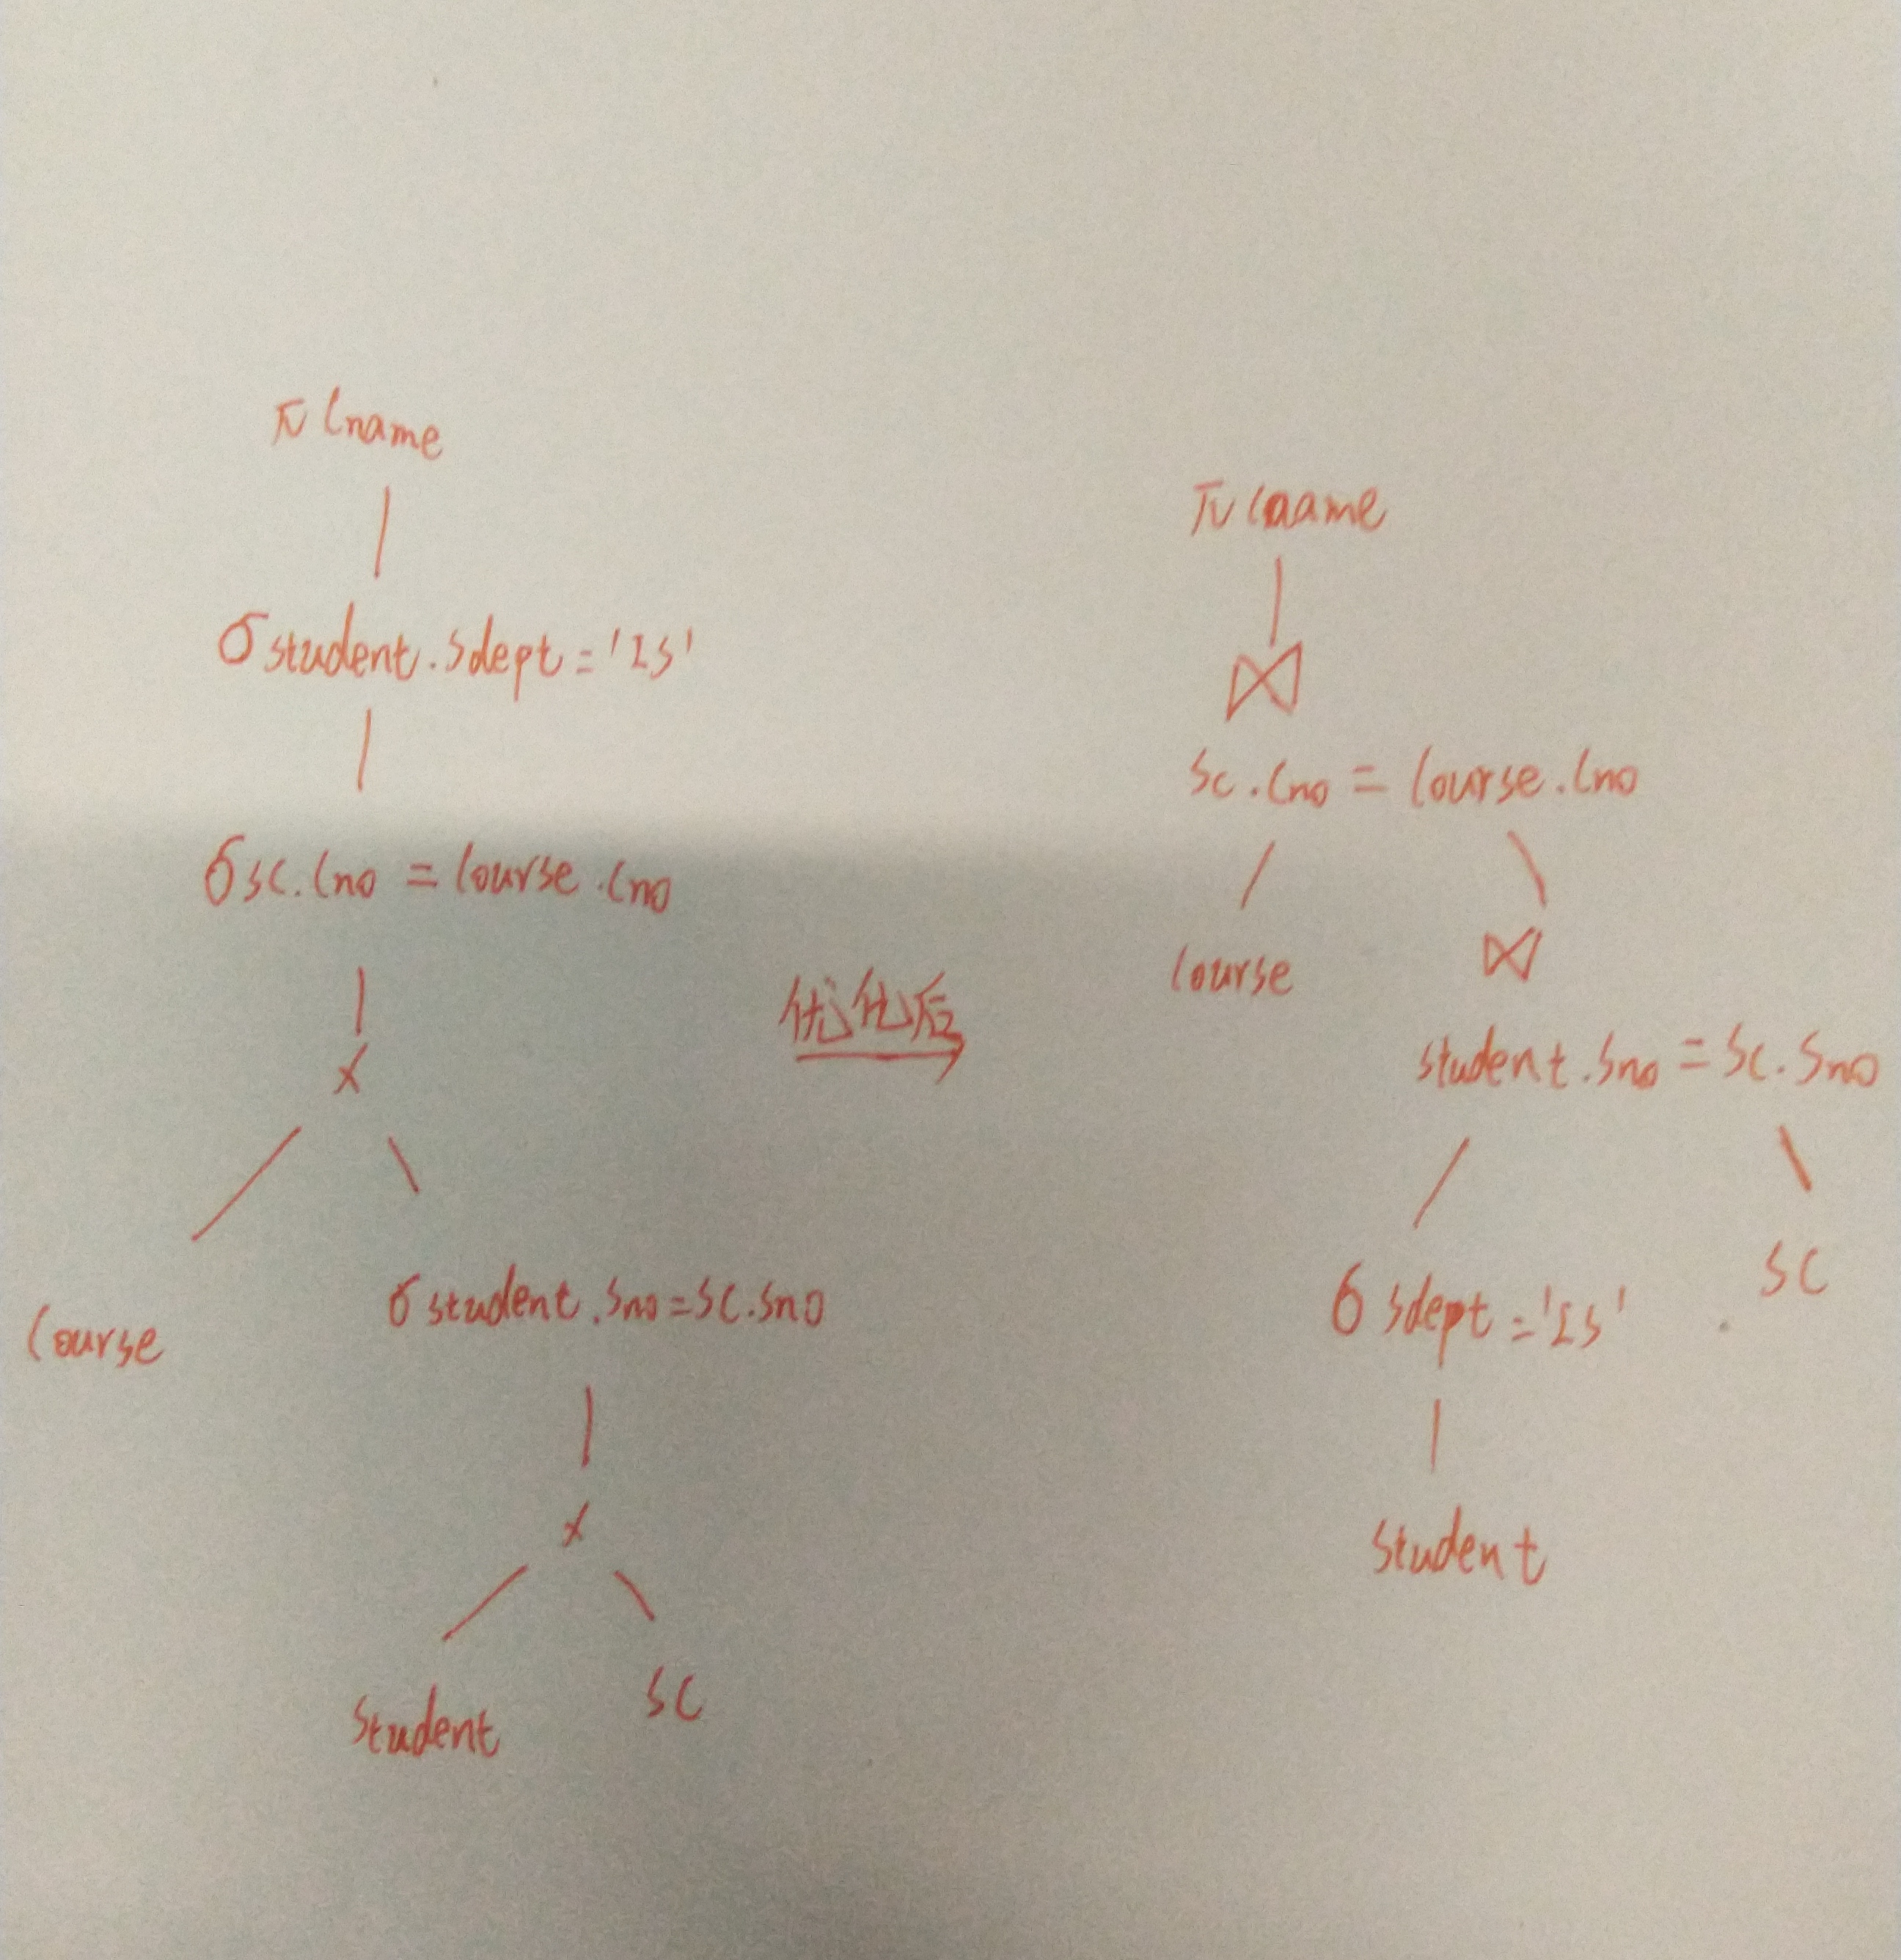 π Cname
σ student.Sdept='IS'
σ SC.Cno = Course.Cno
×
Course
σ student.Sno=SC.Sno
×
Student
SC
优化后
π Cname
⋈
SC.Cno = Course.Cno
Course
⋈
Student.Sno = SC.Sno
σ Sdept='IS'
SC
Student